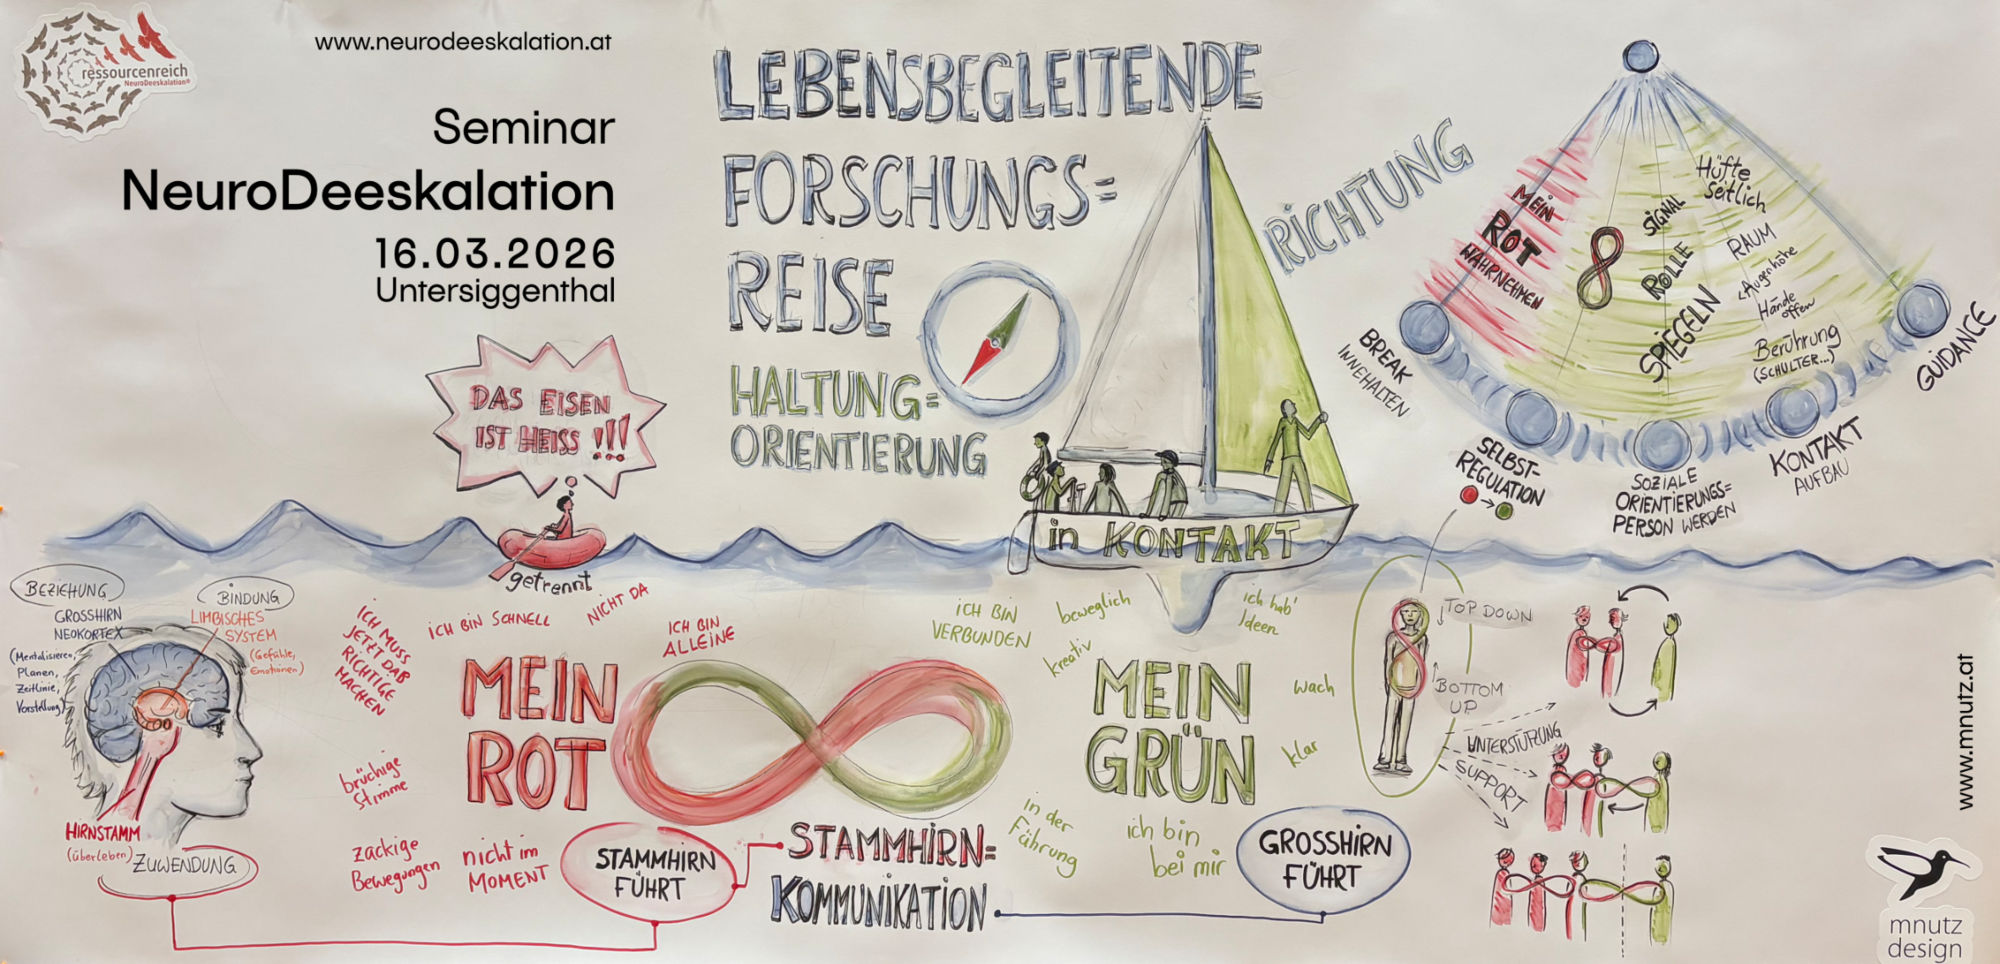 ressourcenreich
NeuroDeeskalation®
www.neurodeeskalation.at
Seminar
NeuroDeeskalation
16.03.2026
Untersiggenthal
LEBENSBEGLEITENDE
FORSCHUNGS=
REISE
HALTUNG=
ORIENTIERUNG
RICHTUNG
MEIN
ROT
WAHRNEHMEN
8
SIGNAL
ROLLE
SPIEGELN
Hüfte
seitlich
RAUM
<Augenhöhe
Hände
offen
Berührung
(SCHULTER...)
BREAK
INNEHALTEN
SELBST-
REGULATION
SOZIALE
ORIENTIERUNGS=
PERSON WERDEN
KONTAKT
AUFBAU
GUIDANCE
DAS EISEN
IST HEISS !!!
getrennt
in KONTAKT
BEZIEHUNG
GROSSHIRN
NEOKORTEX
(Mentalisieren,
Planen,
Zeitlinie,
Vorstellung)
BINDUNG
LIMBISCHES
SYSTEM
(Gefühle,
Emotionen)
HIRNSTAMM
(überleben)
ZUWENDUNG
ICH MUSS
JETZT DAS
RICHTIGE
MACHEN
ICH BIN SCHNELL
NICHT DA
ICH BIN
ALLEINE
MEIN
ROT
brüchige
Stimme
zackige
Bewegungen
nicht im
MOMENT
STAMMHIRN
FÜHRT
STAMMHIRN=
KOMMUNIKATION
iCH BIN
VERBUNDEN
beweglich
ich hab'
Ideen
kreativ
MEIN
GRÜN
wach
klar
in der
Führung
ich bin
bei mir
GROSSHIRN
FÜHRT
TOP DOWN
BOTTOM
UP
UNTERSTÜTZUNG
SUPPORT
www.mnutz.at
mnutz
design